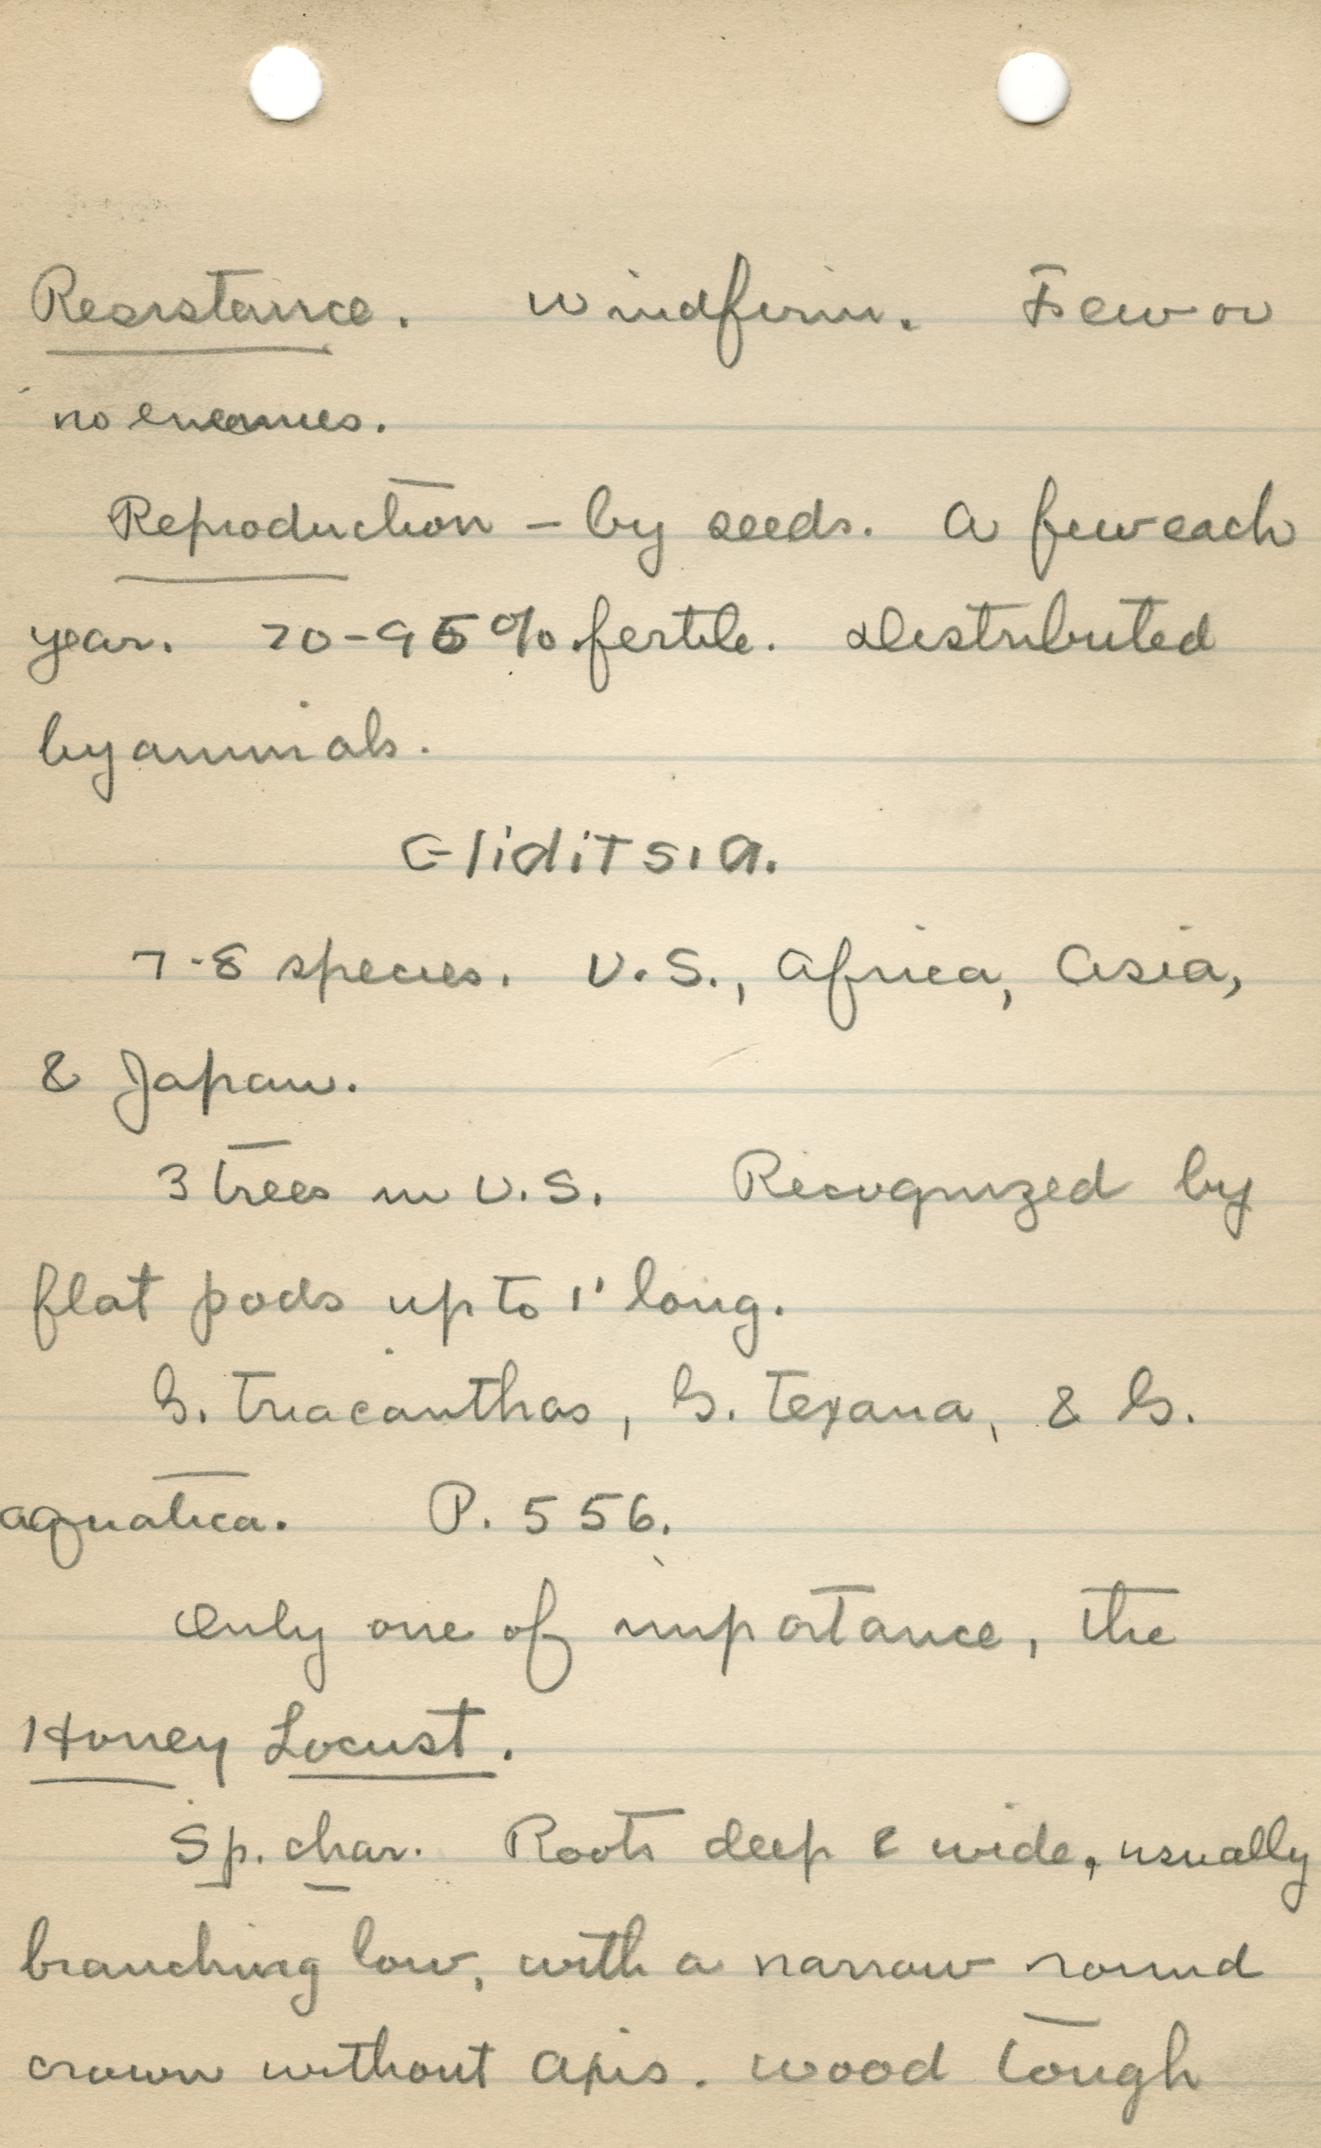 Resistance. Windfirm. Few or
no enemies.
Reproduction - by seeds. A few each
year. 70-95% fertile. Distributed
by animals.
Gliditsia.
7-8 species. U.S., Africa, Asia,
& Japan.
3 trees in U.S. Recognized by
flat pods up to 1' long.
G. triacanthos, G. texana, & G.
aquatica. P. 556.
Only one of importance, the
Honey Locust.
Sp. char. Roots deep & wide, usually
branching low, with a narrow round
crown without axis. Wood tough